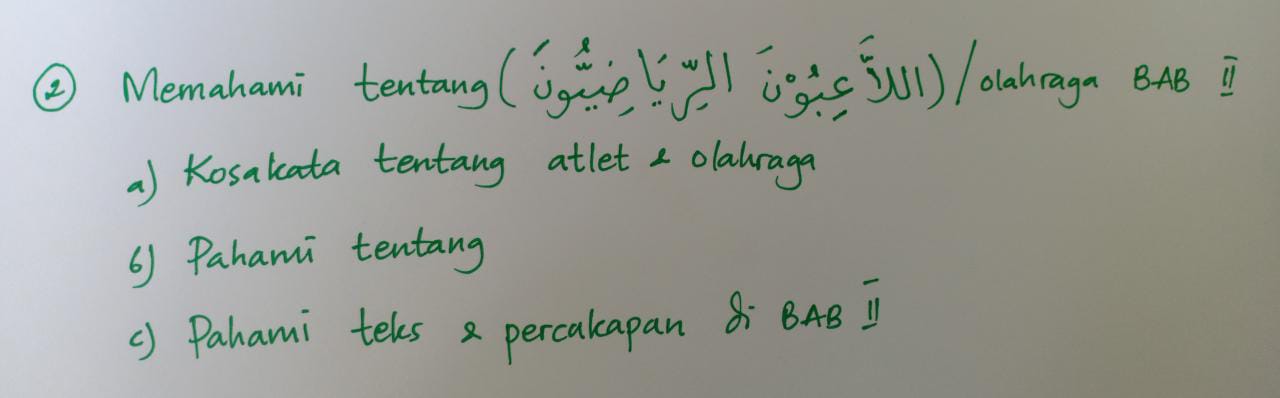 ② Memahami tentang (اللاَّعِبُوْنَ الرِّيَاضِيُّونَ) / olahraga BAB II
a) Kosakata tentang atlet & olahraga
b) Pahami tentang
c) Pahami teks & percakapan di BAB II